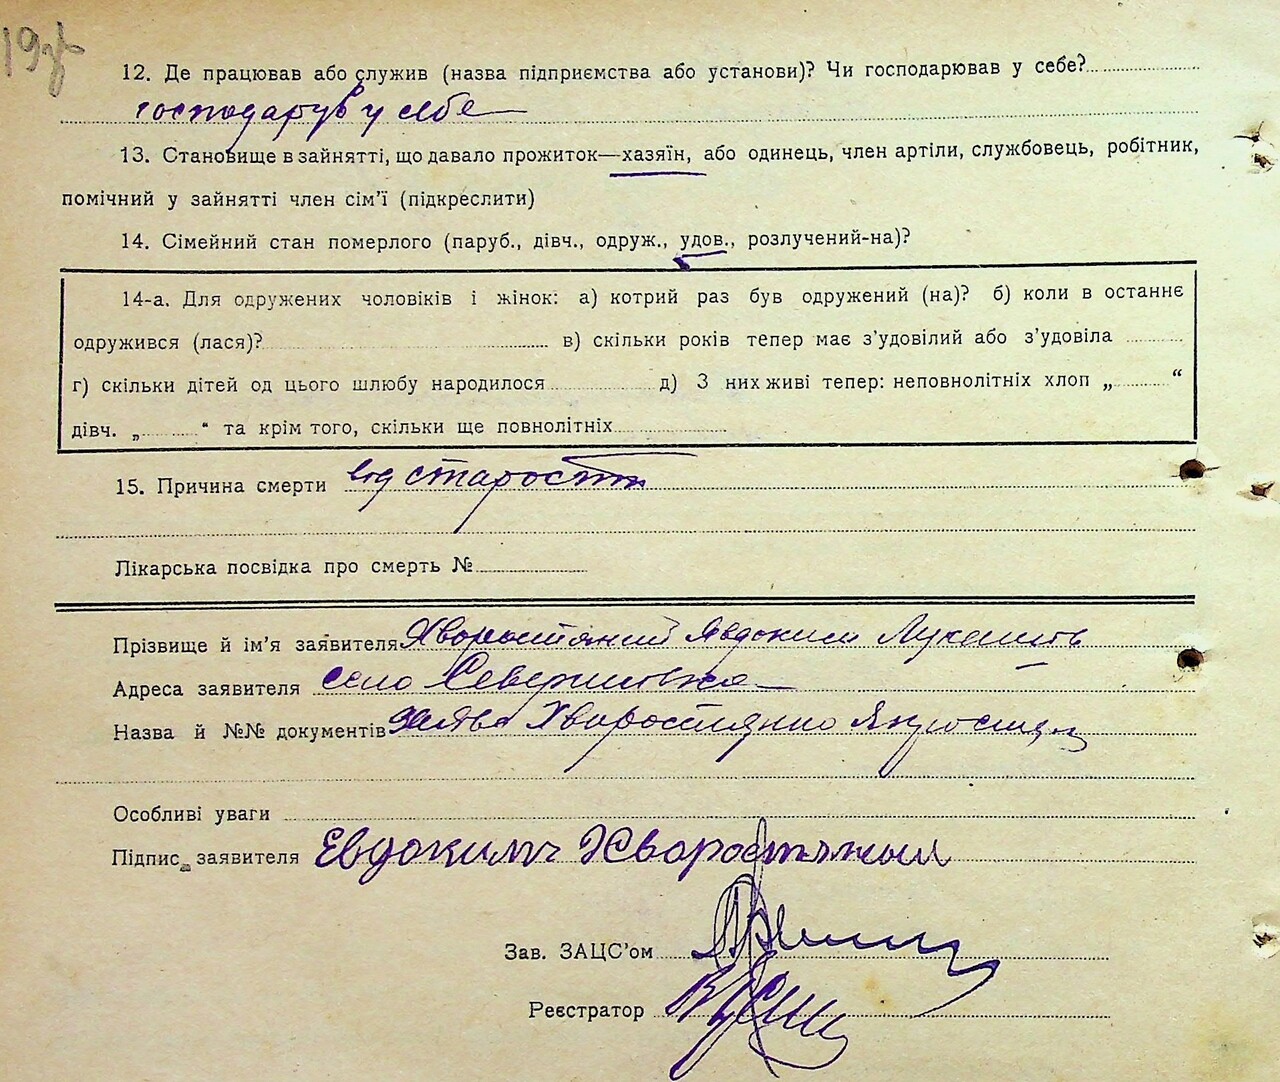 19зв
12. Де працював або служив (назва підприємства або установи)? Чи господарював у себе?
господарув у себе
13. Становище в зайнятті, що давало прожиток—хазяїн, або одинець, член артіли, службовець, робітник,
помічний у зайнятті член сім’ї (підкреслити)
14. Сімейний стан померлого (паруб., дівч., одруж., удов., розлучений-на)?
14-а. Для одружених чоловіків і жінок: а) котрий раз був одружений (на)? б) коли в останнє
одружився (лася)? в) скільки років тепер має з’удовілий або з’удовіла
г) скільки дітей од цього шлюбу народилося д) З них живі тепер: неповнолітніх хлоп „ “
дівч. „ “ та крім того, скільки ще повнолітніх
15. Причина смерти від старости
Лікарська посвідка про смерть №
Прізвище й ім’я заявителя Хворостяний Явдоким
Адреса заявителя село
Назва й №№ документів заява
Особливі уваги
Підпис заявителя Евдокимъ Хворостяный
Зав. ЗАЦС’ом
Реєстратор